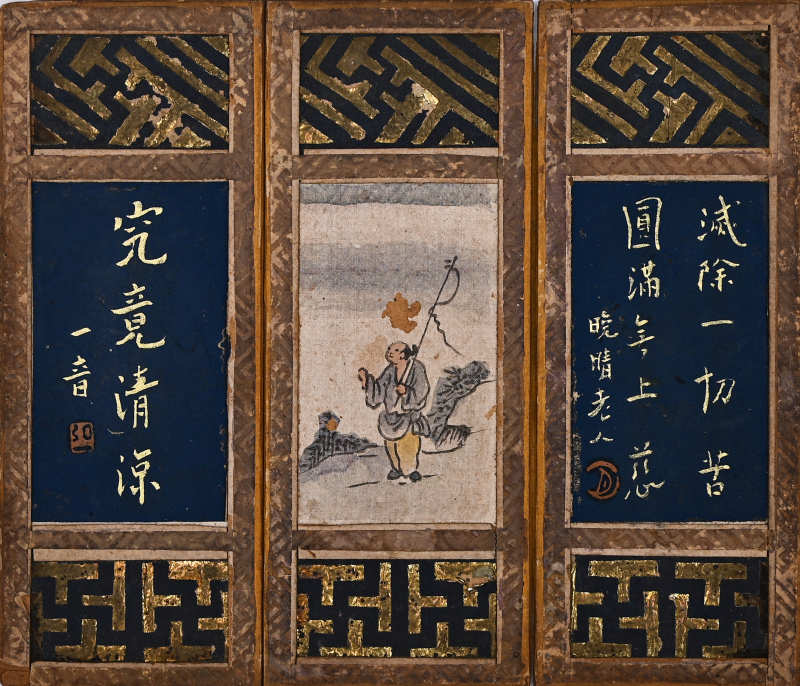 滅除一切苦
圓滿無上慈
晚晴老人
究竟清涼
一音